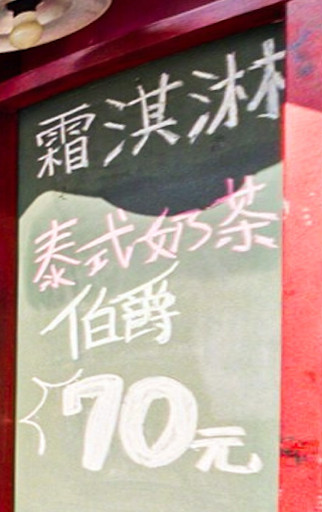 霜淇淋
泰式奶茶
伯爵
70元